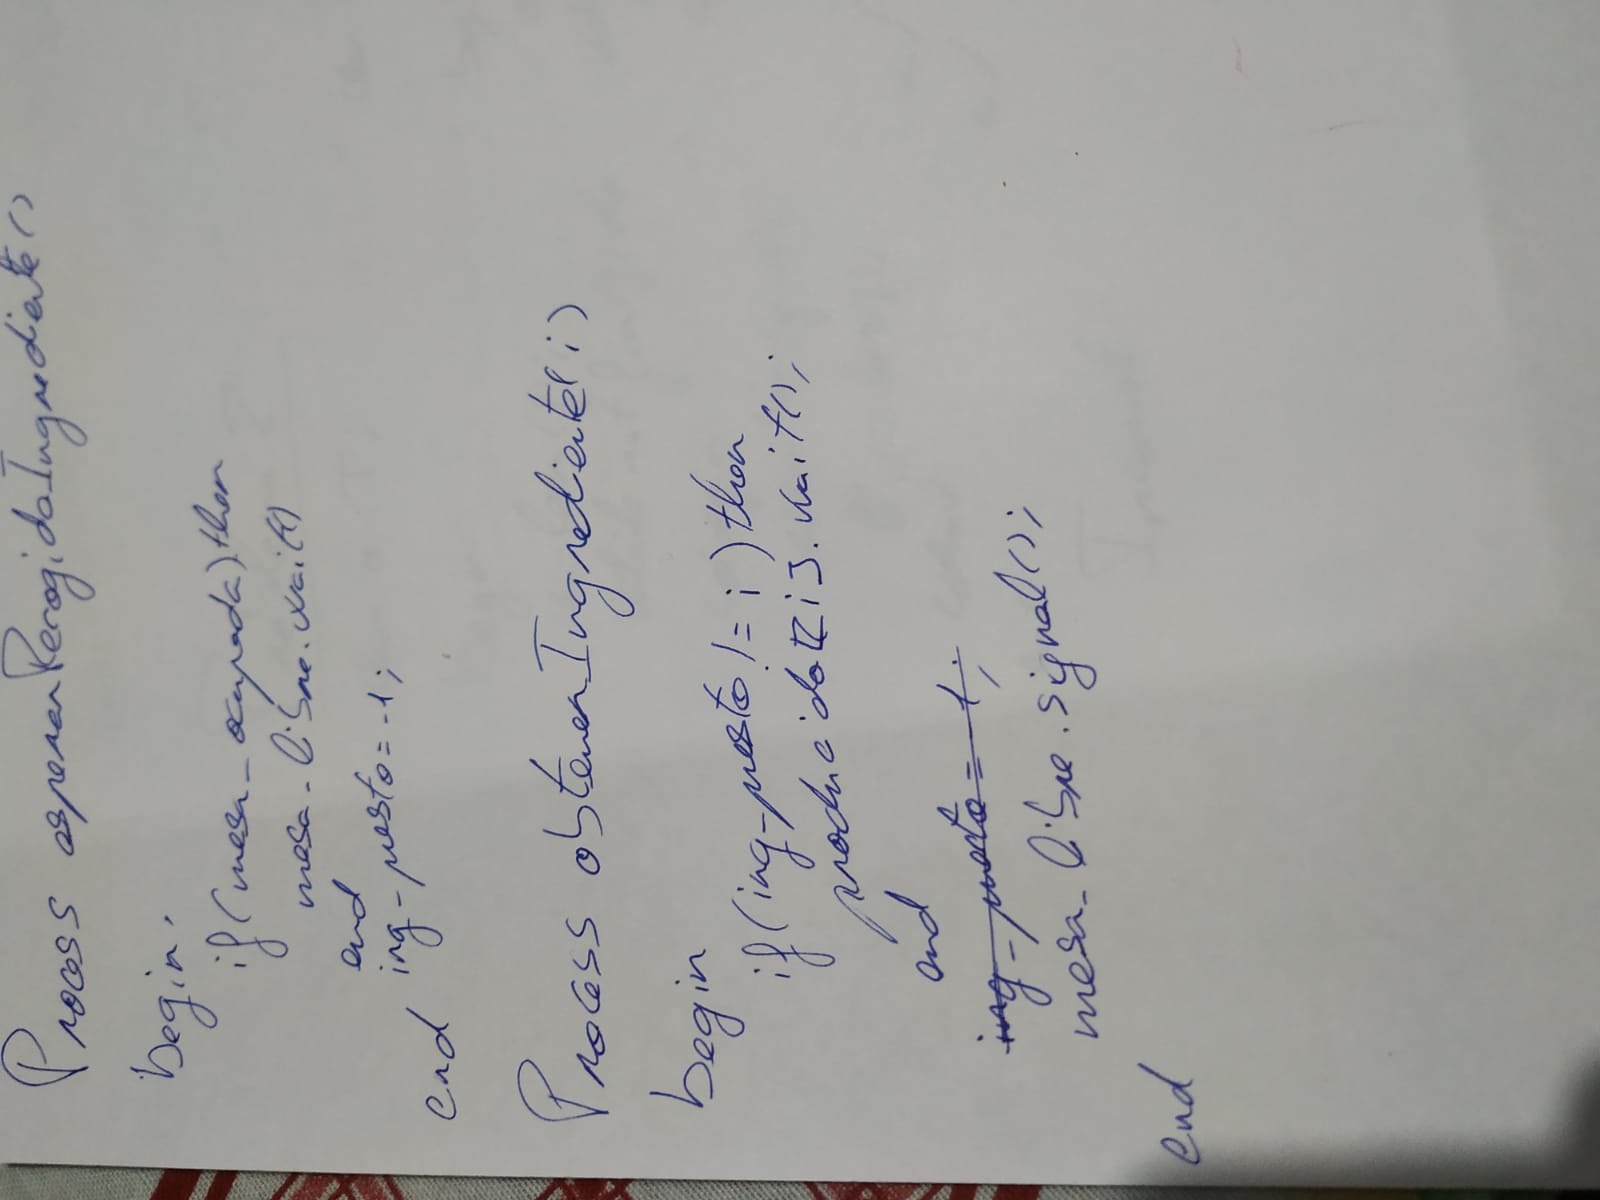 Process esperarRecogidaIngrediente()
begin
if(mesa_ocupada)then
mesa_libre.wait()
end
ing_puesto=-1;
end
Process obtenerIngrediente(i)
begin
if(ing_puesto!=i)then
producido[i].wait();
end
ing_puesto=-1;
mesa_libre.signal();
end